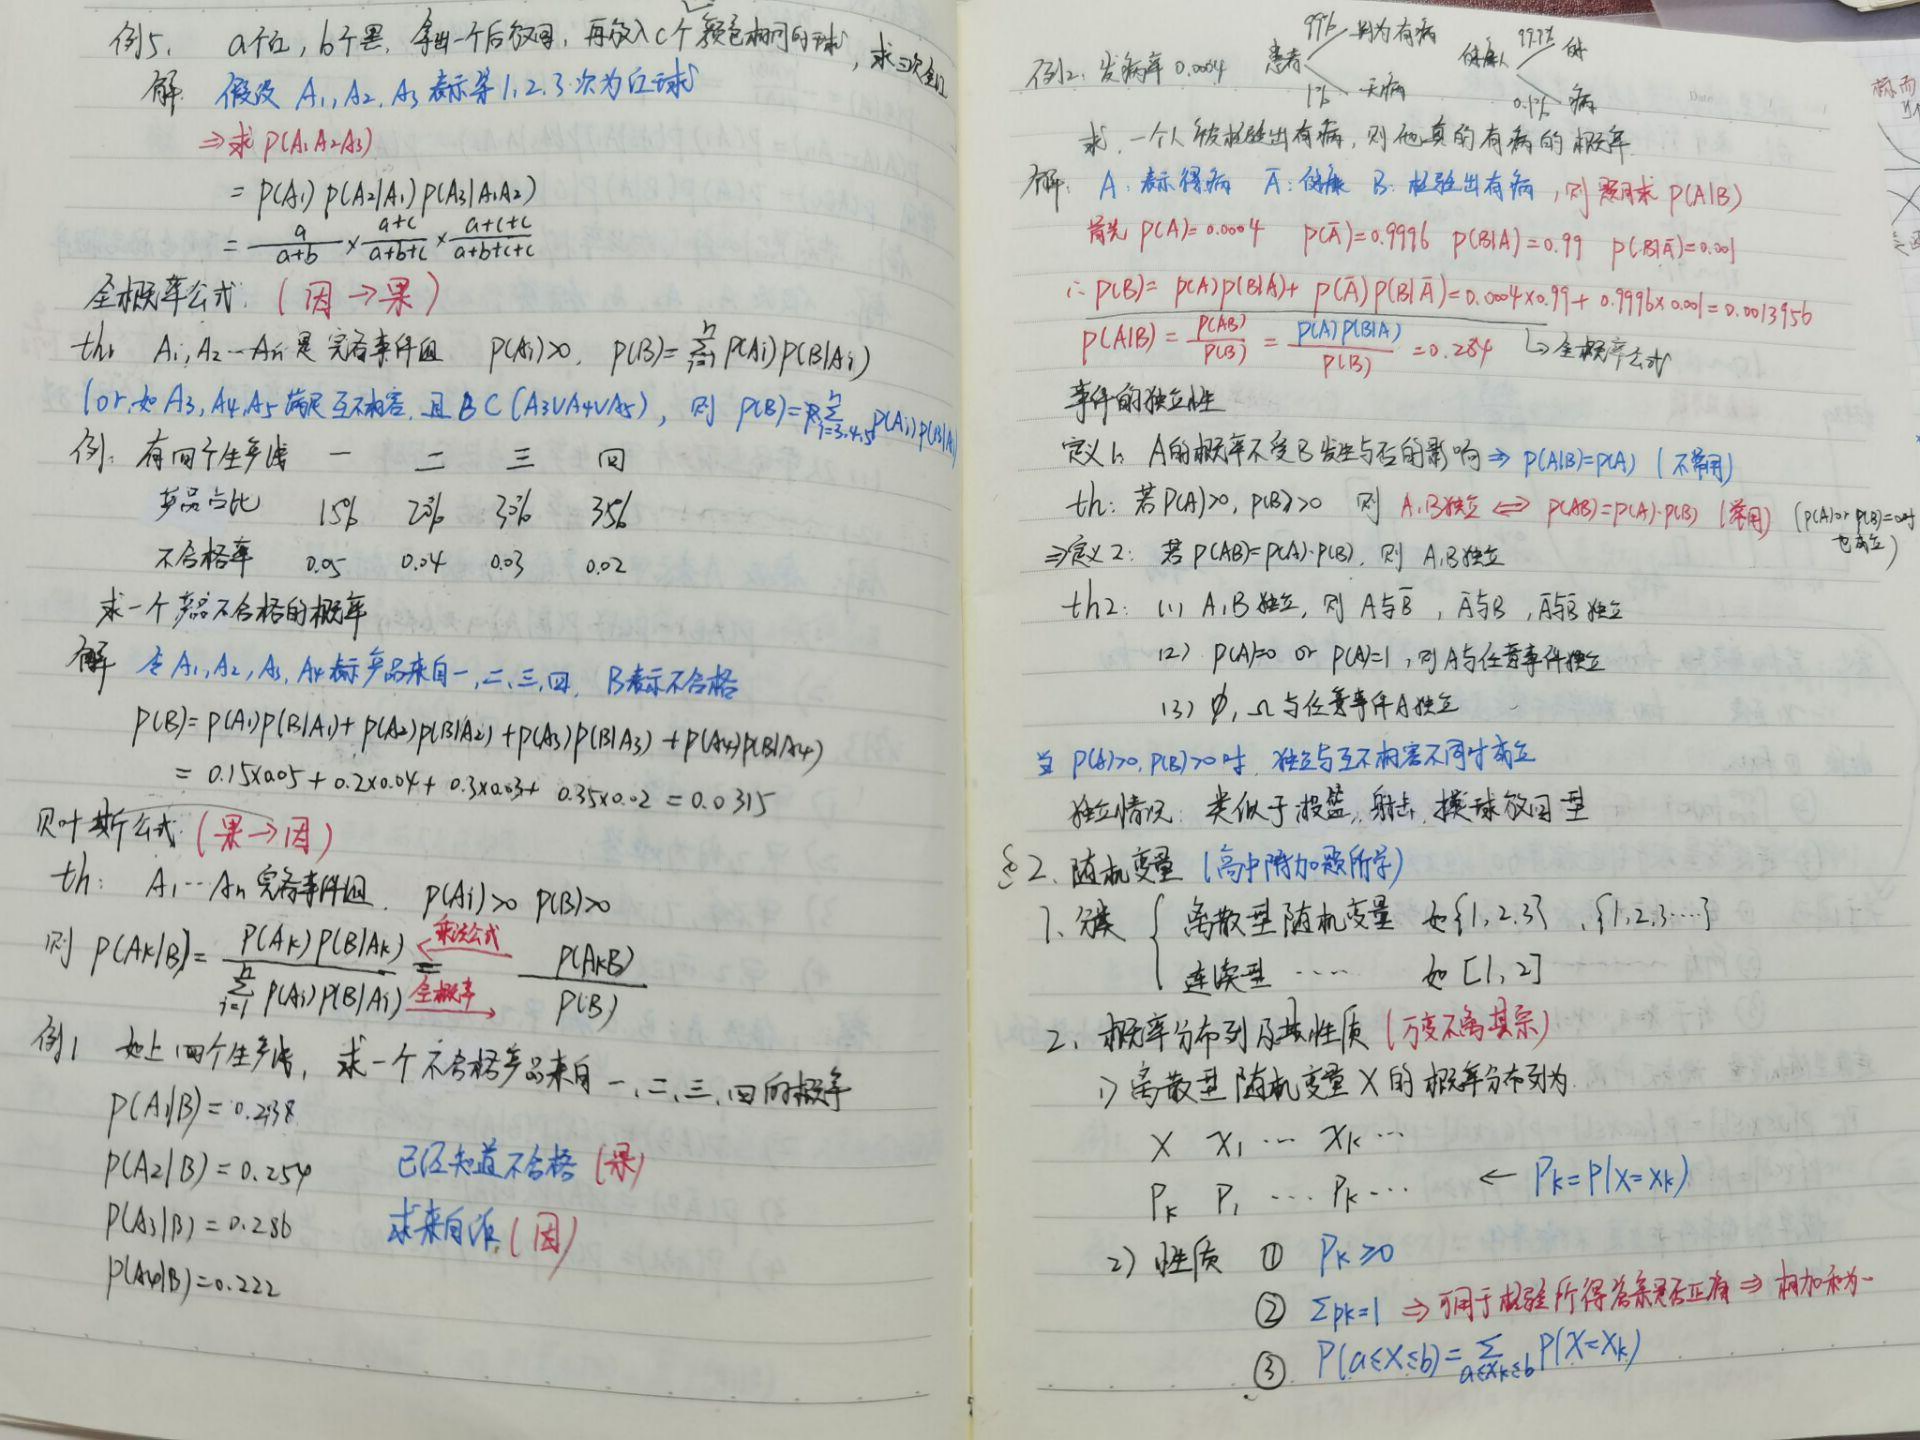 例5. a个红, b个黑, 拿出一个后放回, 再放入c个颜色相同的球, 求三次全红
解 假设 A₁, A₂, A₃ 表示第1,2,3次为红球
⇒求 P(A₁A₂A₃)
= P(A₁) P(A₂|A₁) P(A₃|A₁A₂)
= a/(a+b) × (a+c)/(a+b+c) × (a+c+c)/(a+b+c+c)
全概率公式: (因→果)
th: A₁,A₂…An是完备事件组 P(Ai)>0, P(B)=∑ⁿᵢ₌₁ P(Ai)P(B|Ai)
(or, 如A₃,A₄,A₅满足互不相容, 且B⊂(A₃∪A₄∪A₅), 则 P(B)=∑ⁿᵢ₌₃,₄,₅ P(Ai)P(B|Ai)
例: 有四个生产线 一 二 三 四
产品占比 15% 20% 30% 35%
不合格率 0.05 0.04 0.03 0.02
求一个产品不合格的概率
解 令A₁,A₂,A₃,A₄表示产品来自一,二,三,四, B表示不合格
P(B)=P(A₁)P(B|A₁)+P(A₂)P(B|A₂)+P(A₃)P(B|A₃)+P(A₄)P(B|A₄)
=0.15×0.05+0.2×0.04+0.3×0.03+0.35×0.02=0.0315
贝叶斯公式: (果→因)
th: A₁…An完备事件组. P(Ai)>0 P(B)>0
则 P(Ak|B)= P(Ak)P(B|Ak) / ∑ⁿᵢ₌₁ P(Ai)P(B|Ai) 乘法公式 = 全概率 P(AkB)/P(B)
例1 如上四个生产线, 求一个不合格产品来自一,二,三,四的概率
P(A₁|B)=0.238
P(A₂|B)=0.254 已经知道不合格(果)
P(A₃|B)=0.286 求来自谁(因)
P(A₄|B)=0.222
例2. 发病率0.0004 患者 99% 判为有病 1% 无病 健康人 99.9% 健 0.1% 病
求,一个人被检验出有病,则他真的有病的概率
解: A:表示得病 Ā:健康 B:检验出有病,则题目求P(A|B)
首先 P(A)=0.0004 P(Ā)=0.9996 P(B|A)=0.99 P(B|Ā)=0.001
∴ P(B)= P(A)P(B|A)+ P(Ā)P(B|Ā)=0.0004×0.99+0.9996×0.001=0.0013956
P(A|B)= P(AB)/P(B) = P(A)P(B|A)/P(B) =0.284 ↳全概率公式
事件的独立性
定义1: A的概率不受B发生与否的影响⇒P(A|B)=P(A) (不常用)
th: 若P(A)>0, P(B)>0 则 A,B独立 ⇔ P(AB)=P(A)·P(B) (常用) (P(A) or P(B)=0时也成立)
⇒定义2: 若P(AB)=P(A)·P(B), 则A,B独立
th2: (1) A,B独立, 则 A与B̄, Ā与B, Ā与B̄独立
(2) P(A)=0 or P(A)=1, 则A与任意事件独立
(3) ∅, Ω与任意事件A独立
当 P(A)>0, P(B)>0时, 独立与互不相容不同时成立
独立情况: 类似于投篮, 射击, 摸球放回型
§2. 随机变量 (高中附加题所学)
1. 分类 { 离散型随机变量 如{1,2,3}, {1,2,3…}
连续型 …… 如[1,2]
2. 概率分布列及其性质 (万变不离其宗)
1) 离散型随机变量X的概率分布列为
X X₁ … Xk …
Pk P₁ … Pk … ← Pk=P(X=Xk)
2) 性质 ① Pk≥0
② ∑pk=1 ⇒可用于检验所得答案是否正确⇒相加和为一
③ P(a≤X≤b)=∑a≤Xk≤b P(X=Xk)